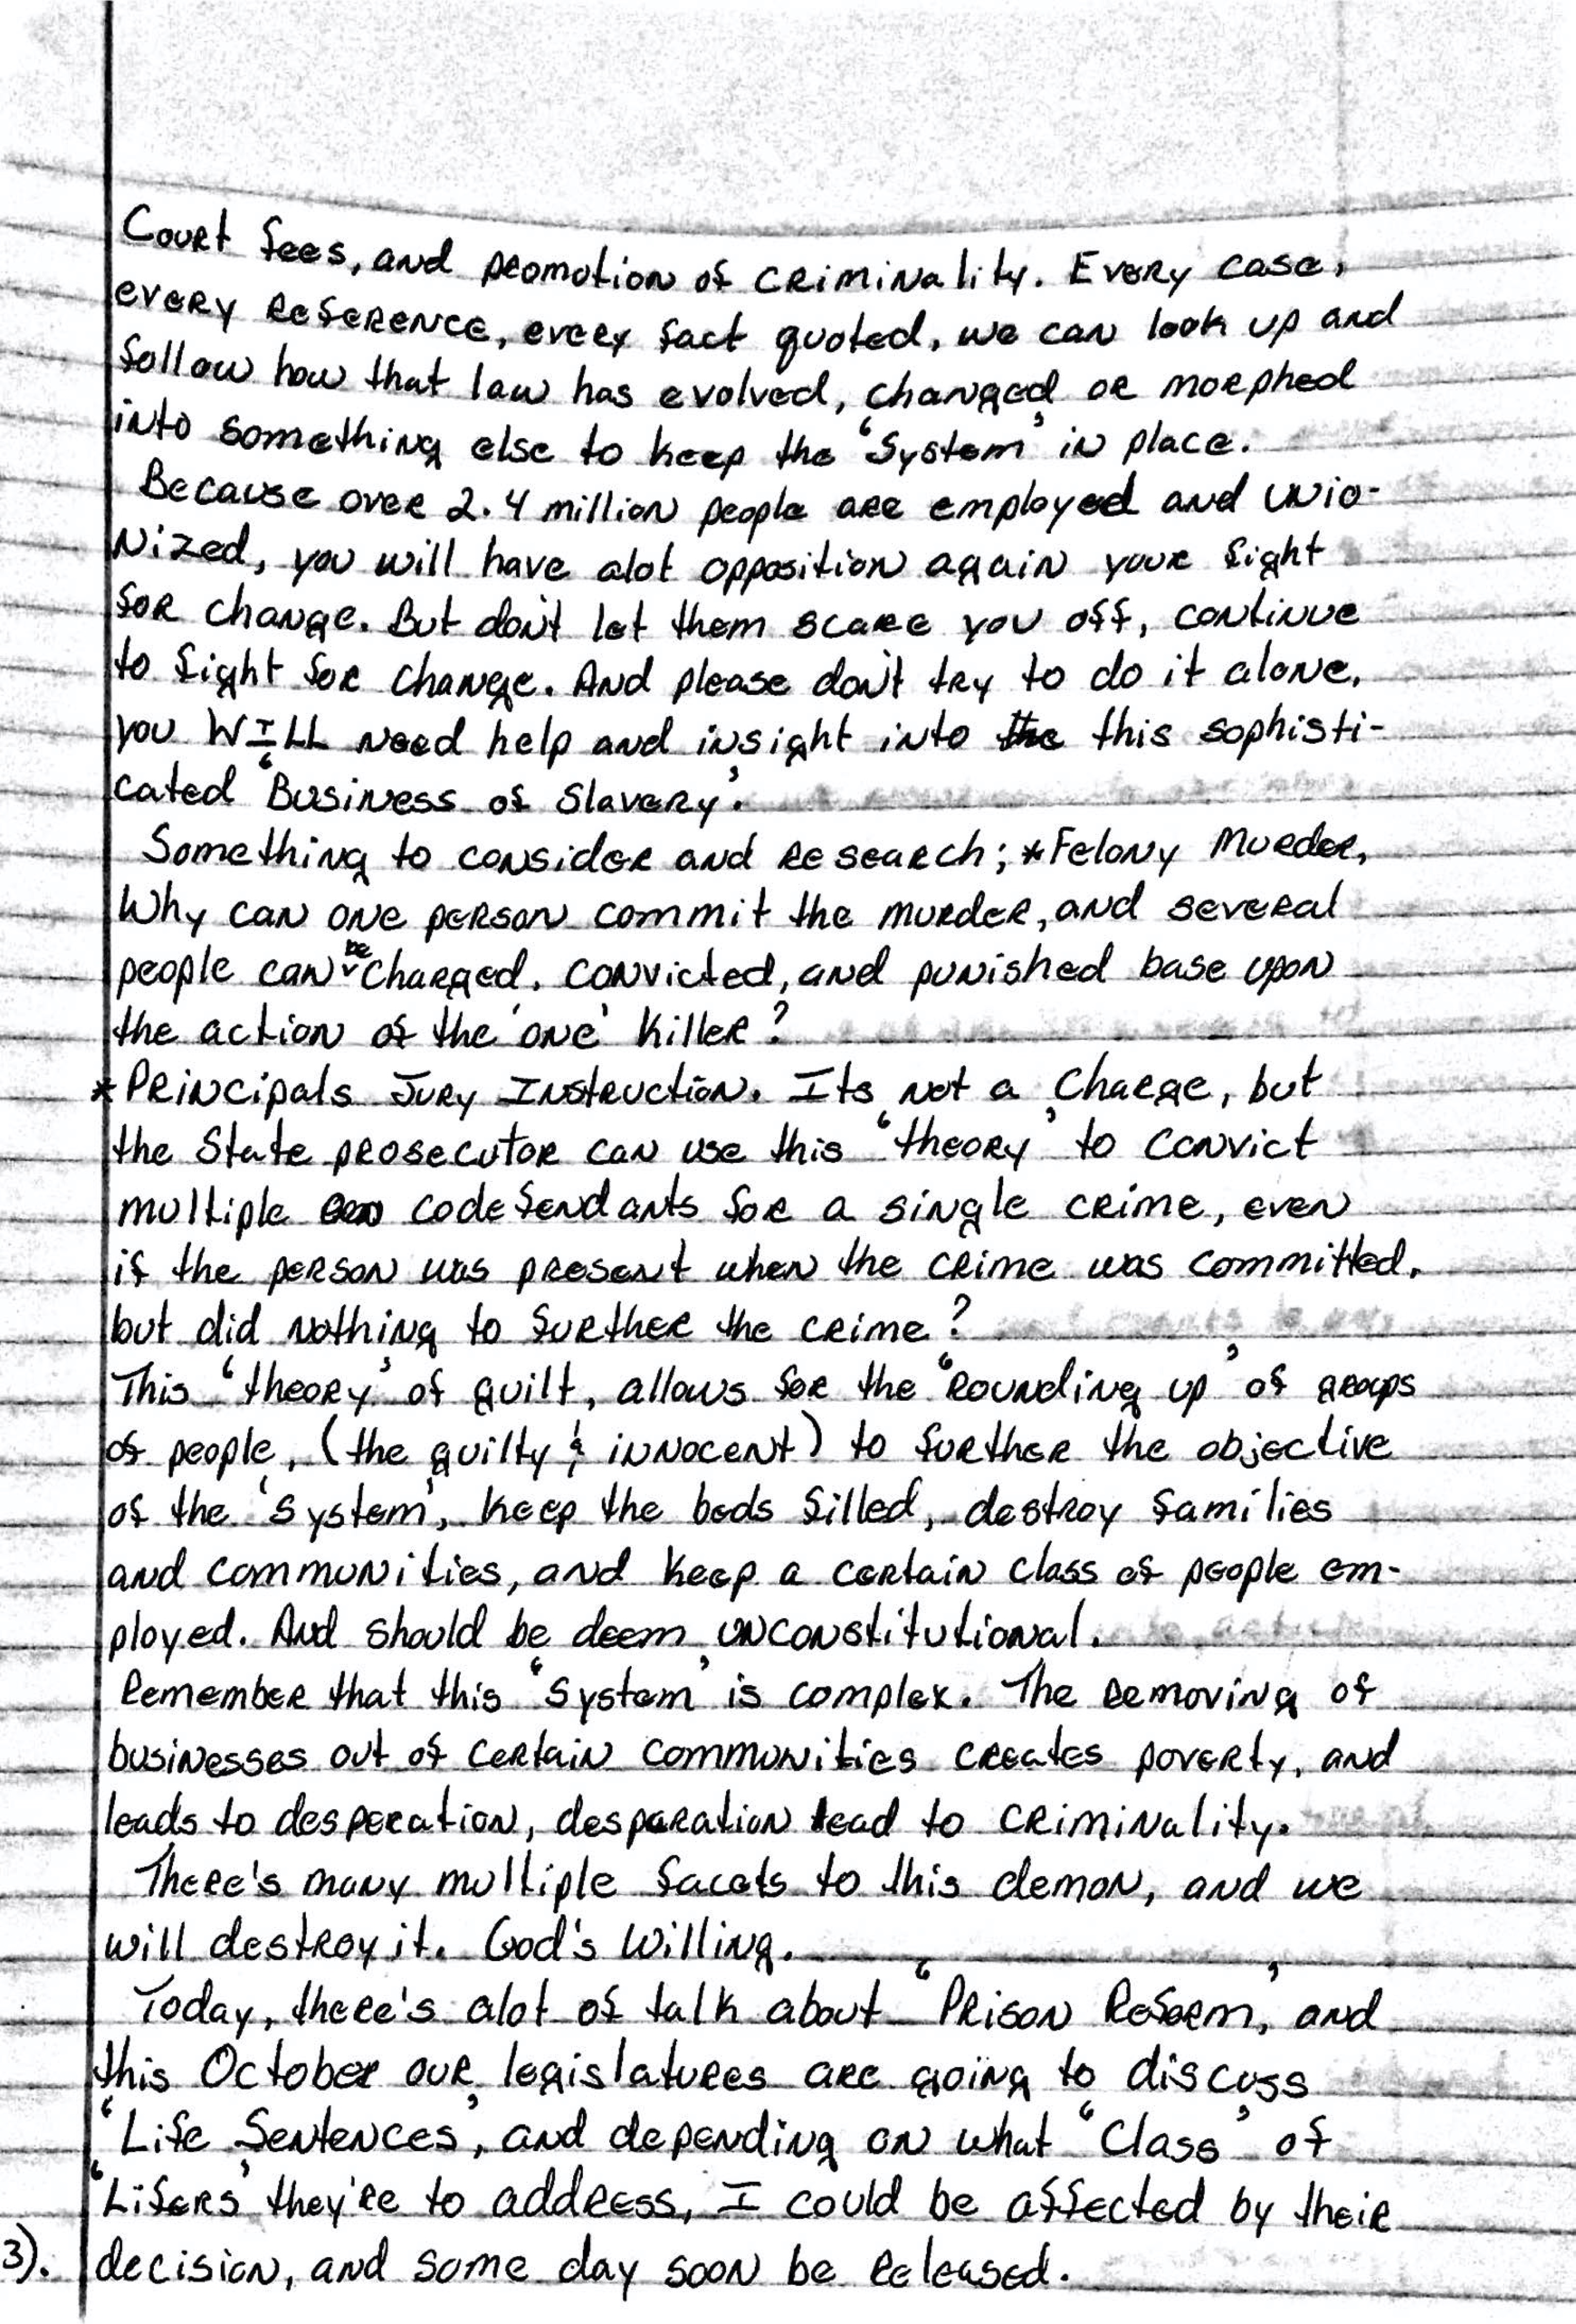 Court fees, and promotion of criminality. Every case,
every reference, every fact quoted, we can look up and
follow how that law has evolved, changed or morphed
into something else to keep the 'System' in place.
Because over 2.4 million people are employed and unio-
nized, you will have alot opposition again your fight
for change. But don't let them scare you off, continue
to fight for change. And please don't try to do it alone,
you WILL need help and insight into the this sophisti-
cated 'Business of Slavery'.
Something to consider and research; *Felony Murder,
Why can one person commit the murder, and several
people can be charged, convicted, and punished base upon
the action of the 'one' killer?
*Principals Jury Instruction. Its not a charge, but
the State prosecutor can use this 'theory' to convict
multiple codefendants for a single crime, even
if the person was present when the crime was committed,
but did nothing to further the crime?
This 'theory' of guilt, allows for the 'rounding up' of groups
of people, (the guilty & innocent) to further the objective
of the 'System', keep the beds filled, destroy families
and communities, and keep a certain class of people em-
ployed. And should be deem unconstitutional.
Remember that this 'System' is complex. The removing of
businesses out of certain communities creates poverty, and
leads to desperation, desparation lead to criminality.
There's many multiple facets to this demon, and we
will destroy it. God's Willing.
Today, there's alot of talk about 'Prison Reform,' and
this October our legislatures are going to discuss
'Life Sentences', and depending on what 'Class' of
'Lifers' they're to address, I could be affected by their
3). decision, and some day soon be released.